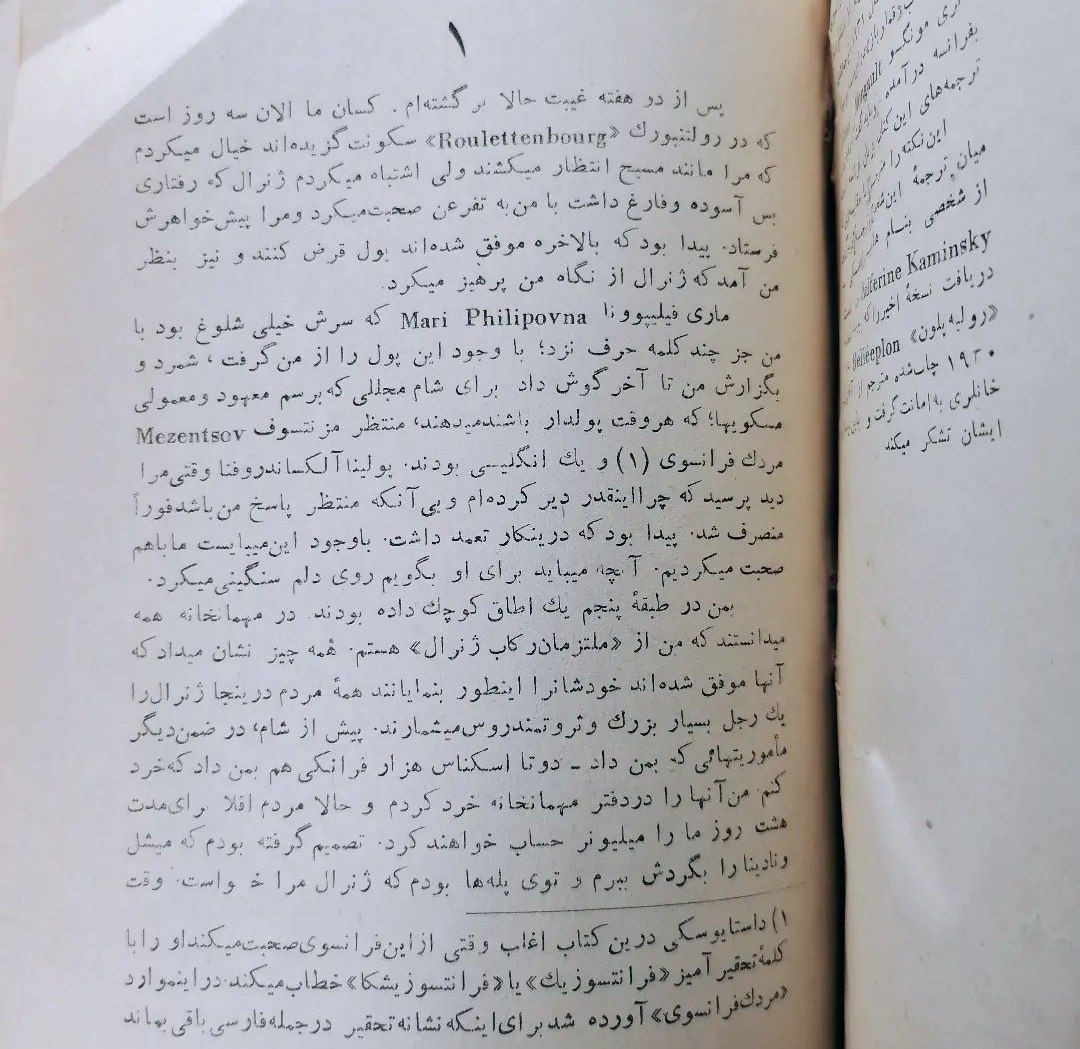 ۱
پس از دو هفته غیبت حالا بر گشته‌ام. کسان ما الان سه روز است
که در رولتنبورك «Roulettenbourg» سکونت گزیده‌اند خیال میکردم
که مرا مانند مسیح انتظار میکشند ولی اشتباه میکردم ژنرال که رفتاری
بس آسوده وفارغ داشت با من به تفرعن صحبت‌میکرد ومرا پیش‌خواهرش
فرستاد. پیدا بود که بالاخره موفق شده‌اند پول قرض کنند و نیز بنظر
من آمد که ژنرال از نگاه من پرهیز میکرد.
ماری فیلیپوونا Mari Philipovna که سرش خیلی شلوغ بود با
من جز چند کلمه حرف نزد؛ با وجود این پول را از من گرفت، شمرد و
بگزارش من تا آخر گوش داد برای شام مجللی که برسم معهود ومعمولی
مسکویها؛ که هروقت پولدار باشندمیدهند، منتظر مزنتسوف Mezentsov
مردك فرانسوی (۱) و یك انگلیسی بودند. پولینا آلکساندروفنا وقتی مرا
دید پرسید که چرا اینقدر دیر کرده‌ام و بی آنکه منتظر پاسخ من باشد فوراً
منصرف شد. پیدا بود که درینکار تعمد داشت. باوجود این میبایست ما باهم
صحبت میکردیم. آنچه میباید برای او بگویم روی دلم سنگینی میکرد.
بمن در طبقهٔ پنجم یك اطاق کوچك داده بودند. در مهمانخانه همه
میدانستند که من از «ملتزمان رکاب ژنرال» هستم. همه چیز نشان میداد که
آنها موفق شده‌اند خودشانرا اینطور بنمایانند همهٔ مردم درینجا ژنرال را
یك رجل بسیار بزرك وثروتمندروس میشمارند. پیش از شام، در ضمن دیگر
مأموریتهائی که بمن داد ـ دو تا اسکناس هزار فرانکی هم بمن داد که خرد
کنم. من آنها را دردفتر مهمانخانه خرد کردم و حالا مردم اقلا برای مدت
هشت روز ما را میلیونر حساب خواهند کرد. تصمیم گرفته بودم که میشل
ونادینا را بگردش ببرم و توی پله‌ها بودم که ژنرال مرا خواست. وقت
۱) داستایوسکی درین کتاب اغلب وقتی از این فرانسوی صحبت میکند او را با
کلمهٔ تحقیر آمیز «فرانتسوزیك» یا «فرانتسوزیشکا» خطاب میکند. در اینموارد
«مردك فرانسوی» آورده شد برای اینکه نشانه تحقیر در جمله فارسی باقی بماند
بفرانسه در آمده
ترجمه‌های این
این نکته را
میان ترجمهٔ این
از شخصی بنام
Halferine Kaminsky
دریافت نسخهٔ اخیر را که
«رولیه بلون»
۱۹۳۰ چاپ‌شده مترجم از
خانلری به امانت گرفت و
ایشان تشکر میکند